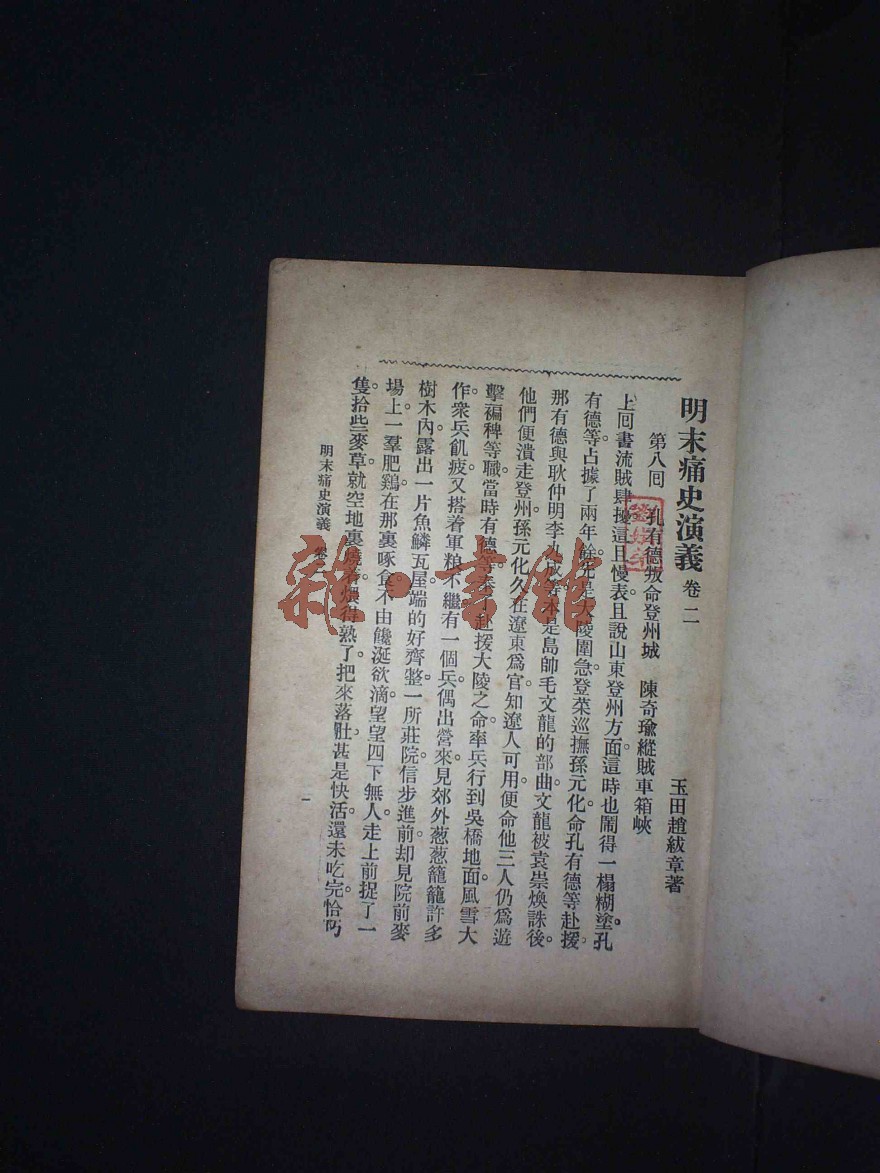 明末痛史演義 卷二
玉田趙紱章著
第八囘 孔有德叛命登州城 陳奇瑜縱賊車箱峽
上囘書流賊肆擾這且慢表且說山東登州方面。這時也鬧得一榻糊塗。孔
有德等占據了兩年餘先是大陵圍急登萊巡撫孫元化命孔有德等赴援。
那有德與耿仲明李九成等本是島帥毛文龍的部曲。文龍被袁崇煥誅後。
他們便潰走登州。孫元化久在遼東爲官。知遼人可用。便命他三人仍爲遊
擊褊稗等職。當時有德等奉了赴援大陵之命率兵行到吳橋地面。風雪大
作。衆兵飢疲。又搭着軍粮不繼。有一個兵偶出營來。見郊外葱葱籠籠許多
樹木內。露出一片魚鱗瓦屋。端的好齊整一所莊院。信步進前。却見院前麥
場上。一羣肥鷄在那裏啄食。不由饞涎欲滴。望望四下無人。走上前捉了一
隻。拾些麥草就空地裏燒着。煨得熟了。把來落肚。甚是快活。還未吃完。恰
明末痛史演義 卷二
一
雜·書館